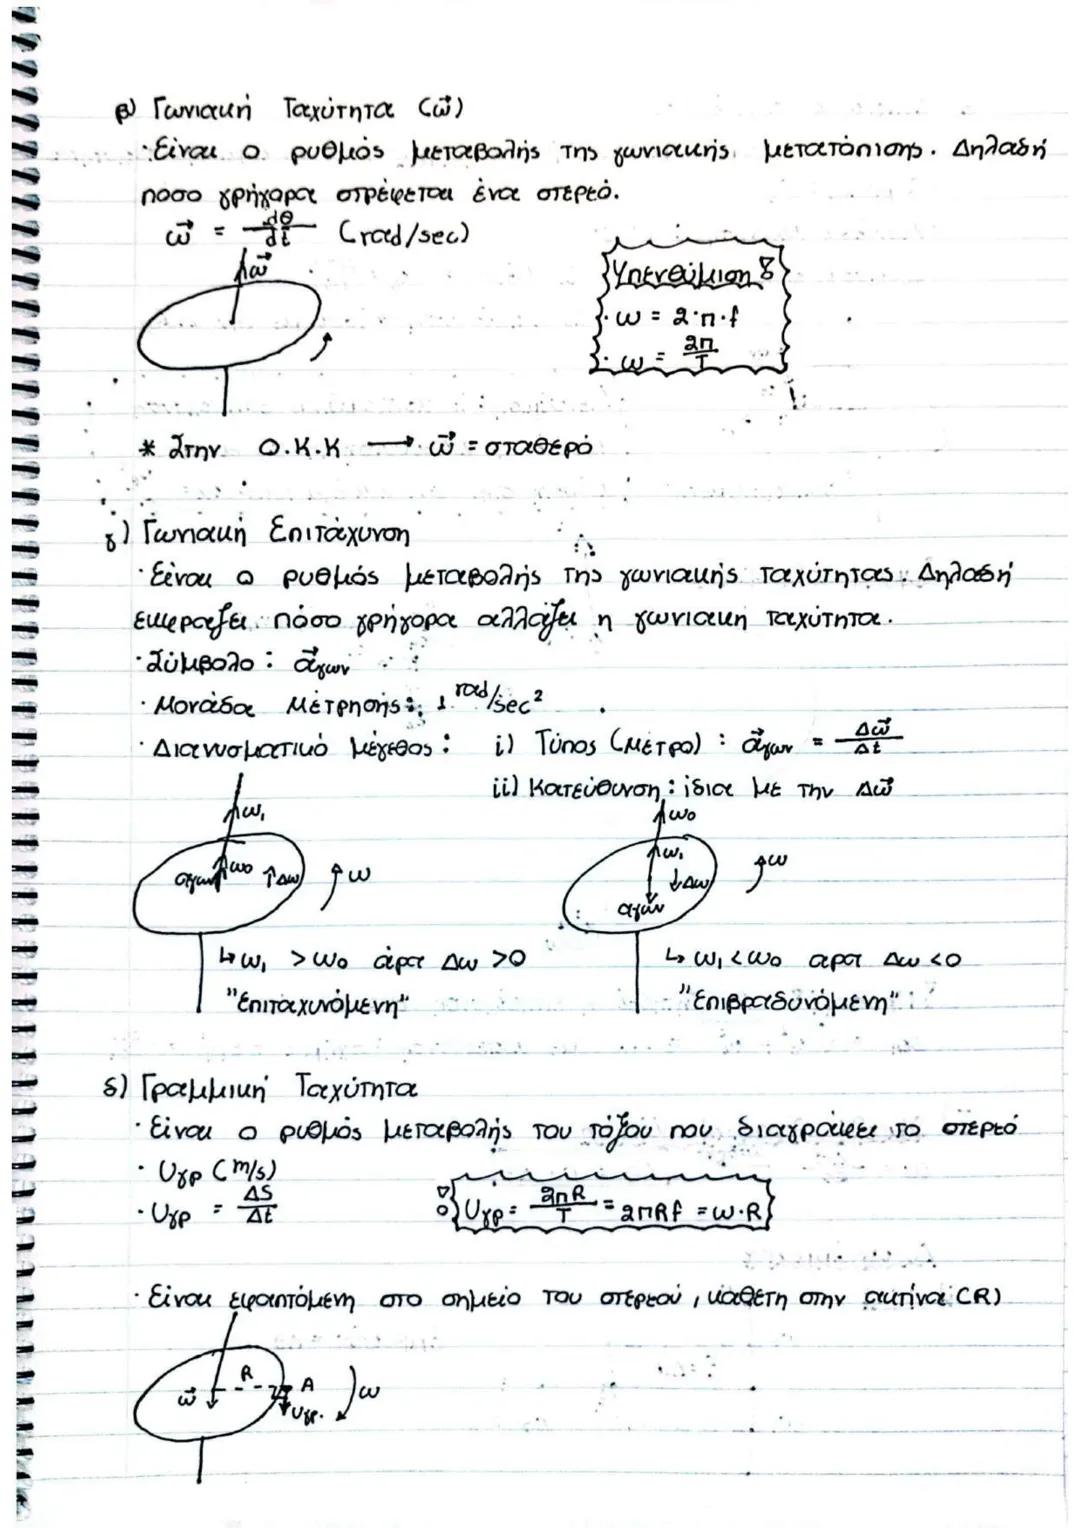 β) Γωνιακή Ταχύτητα (ω⃗)
· Είναι ο ρυθμός μεταβολής της γωνιακής μετατόπισης. Δηλαδή
πόσο γρήγορα στρέφεται ένα στερεό.
ω⃗ = dθ/dt (rad/sec)
ω⃗
Υπενθύμιση:
· ω = 2·π·f
· ω = 2π/T
* Στην Ο.Κ.Κ → ω⃗ = σταθερό
γ) Γωνιακή Επιτάχυνση
· Είναι ο ρυθμός μεταβολής της γωνιακής ταχύτητας. Δηλαδή
εκφράζει πόσο γρήγορα αλλάζει η γωνιακή ταχύτητα.
· Σύμβολο: α⃗γων
· Μονάδα Μέτρησης: 1 rad/sec²
· Διανυσματικό μέγεθος: i) Τύπος (Μέτρο): α⃗γων = Δω⃗/Δt
ii) Κατεύθυνση: ίδια με την Δω⃗
ω₁ ω₀
αγων ω₀ ↑Δω ω
ω₁ ↓Δω ω
αγων
↳ ω₁ > ω₀ άρα Δω >0 ↳ ω₁ < ω₀ άρα Δω <0
"Επιταχυνόμενη" "Επιβραδυνόμενη"
δ) Γραμμική Ταχύτητα
· Είναι ο ρυθμός μεταβολής του τόξου που διαγράφει το στερεό
· Uγρ (m/s)
· Uγρ = ΔS/Δt
Uγρ = 2πR/T = 2πRf = ω·R
· Είναι εφαπτόμενη στο σημείο του στερεού, κάθετη στην ακτίνα (R)
ω⃗ R A ω
Uγρ.